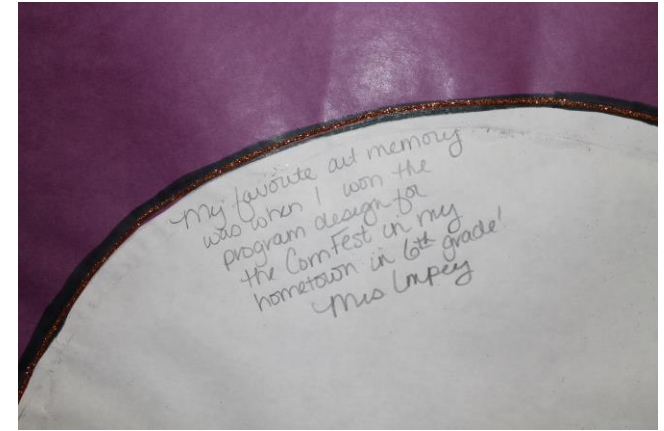 My favorite art memory
was when I won the
program design for
the CornFest in my
hometown in 6th grade!
Mrs Impey